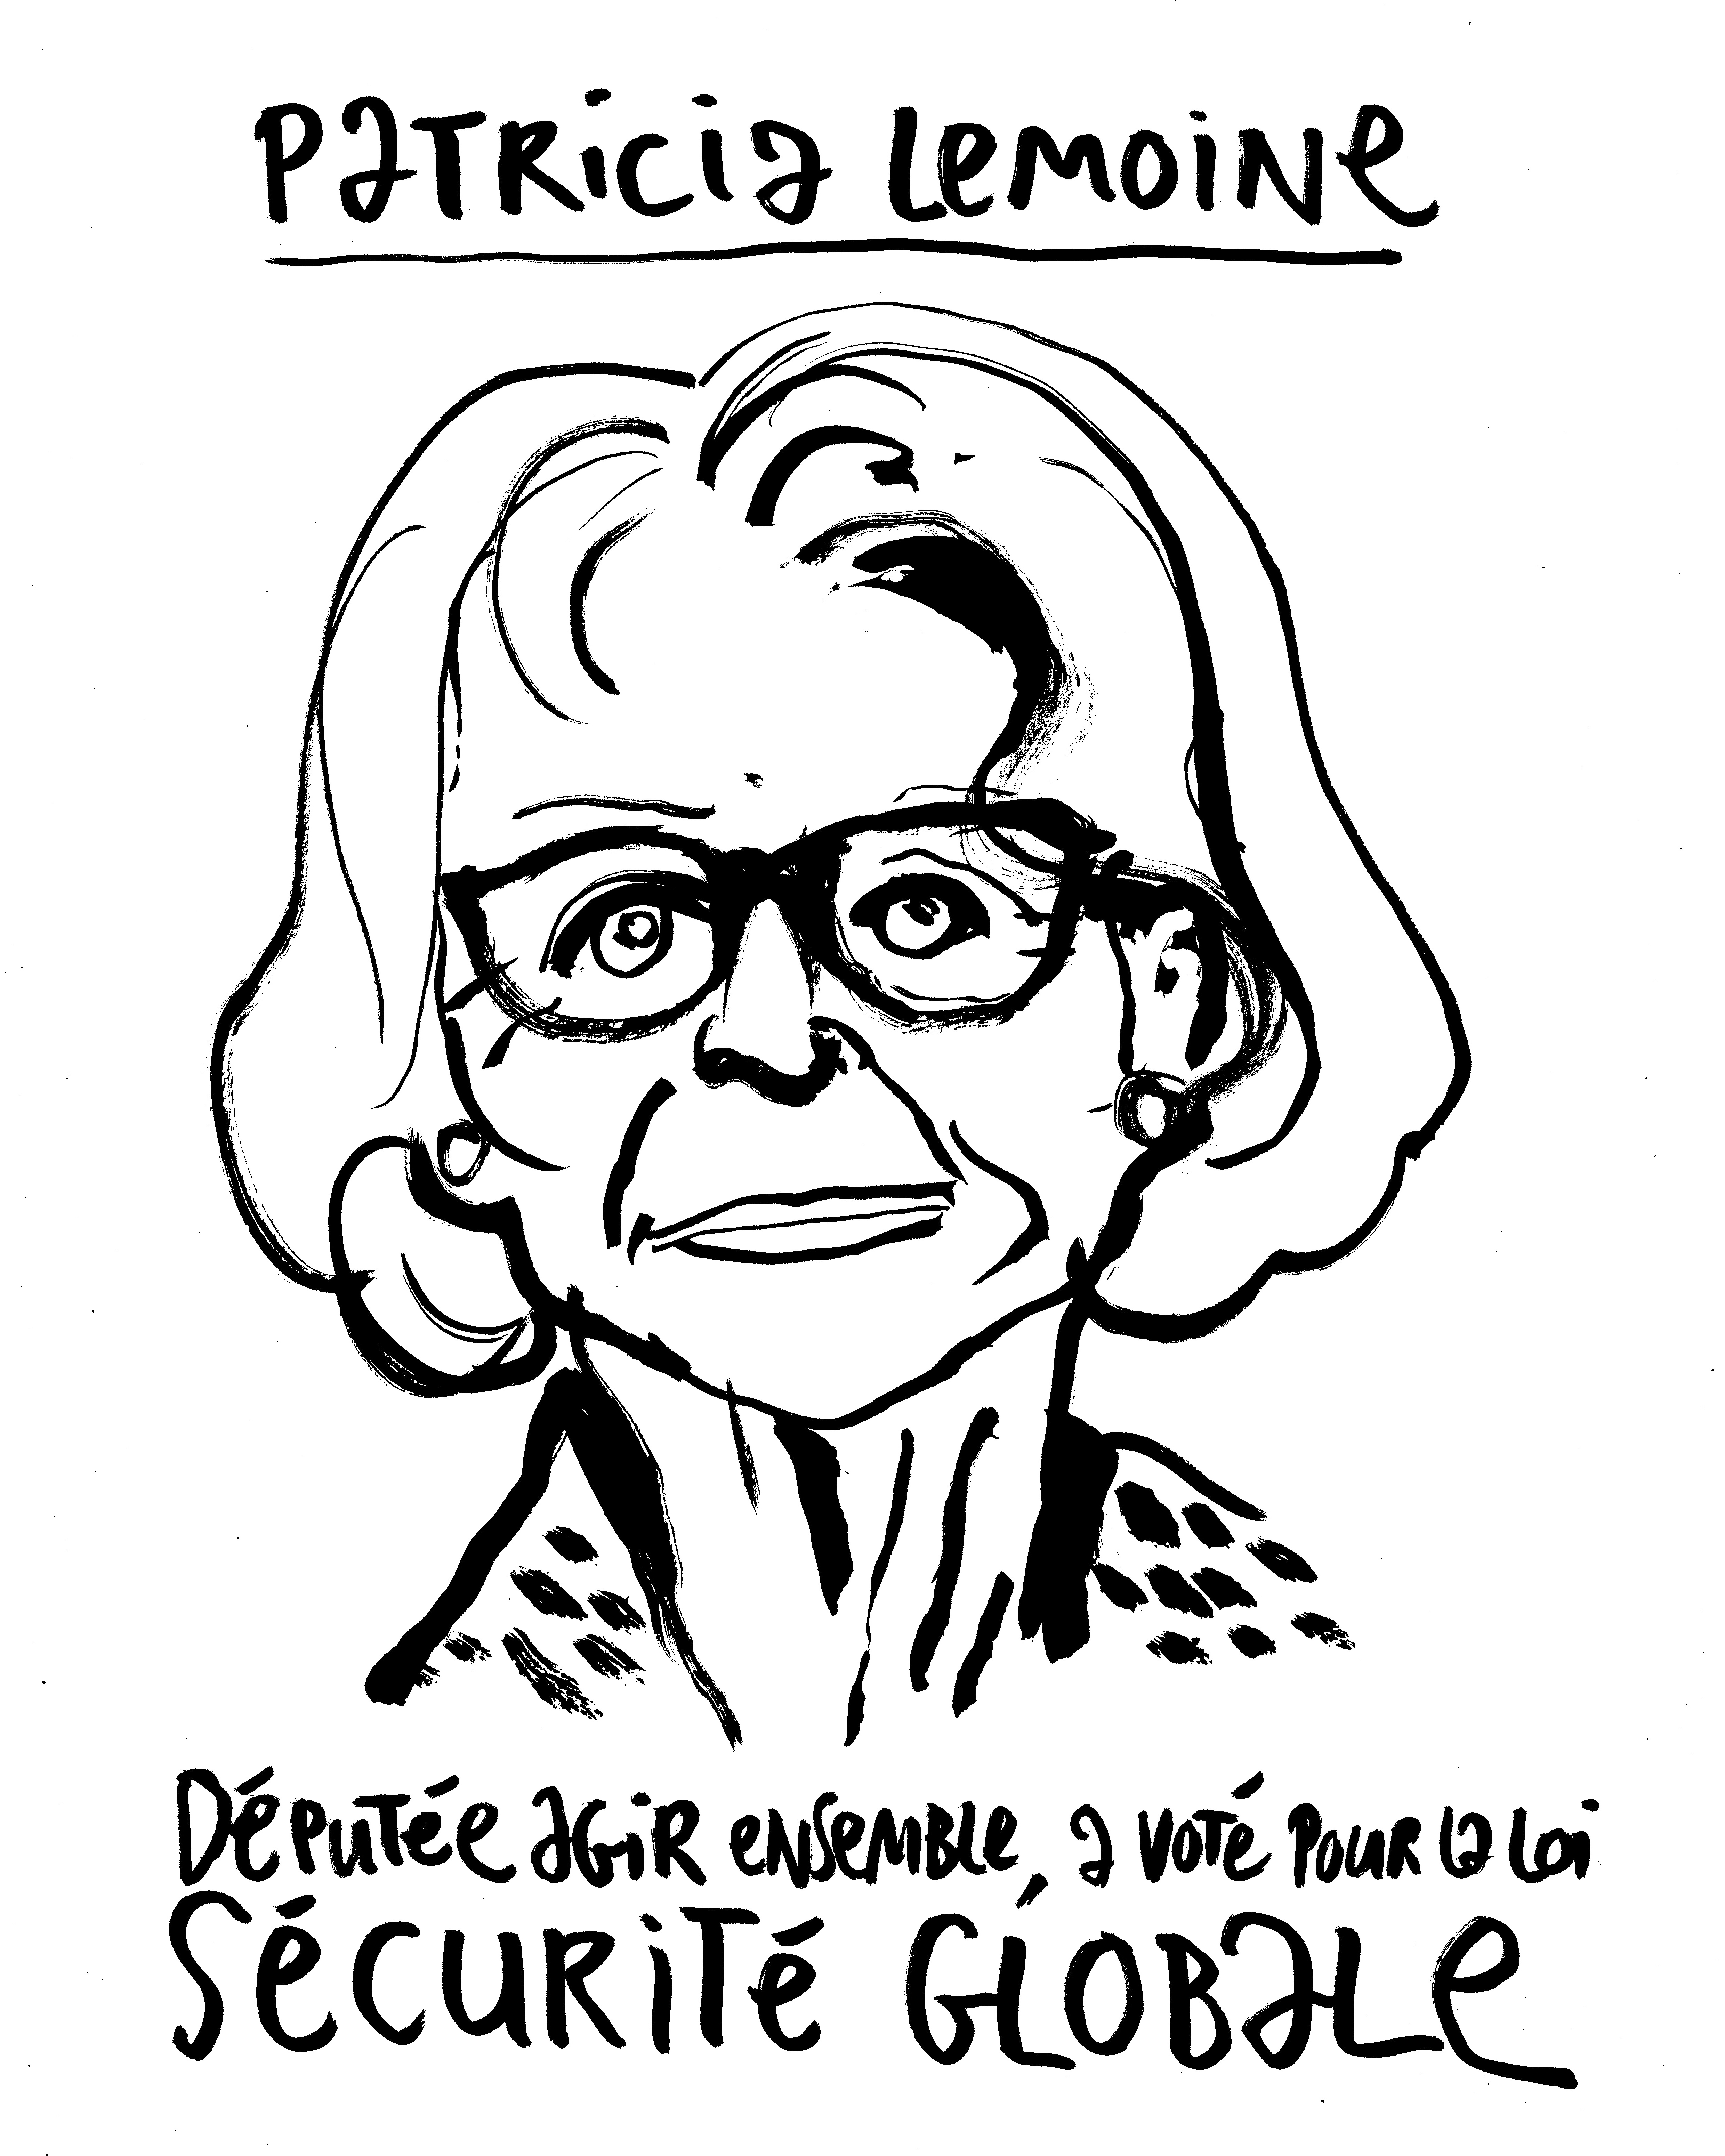 Patricia Lemoine
Députée Agir ensemble, a voté pour la loi
Sécurité Globale